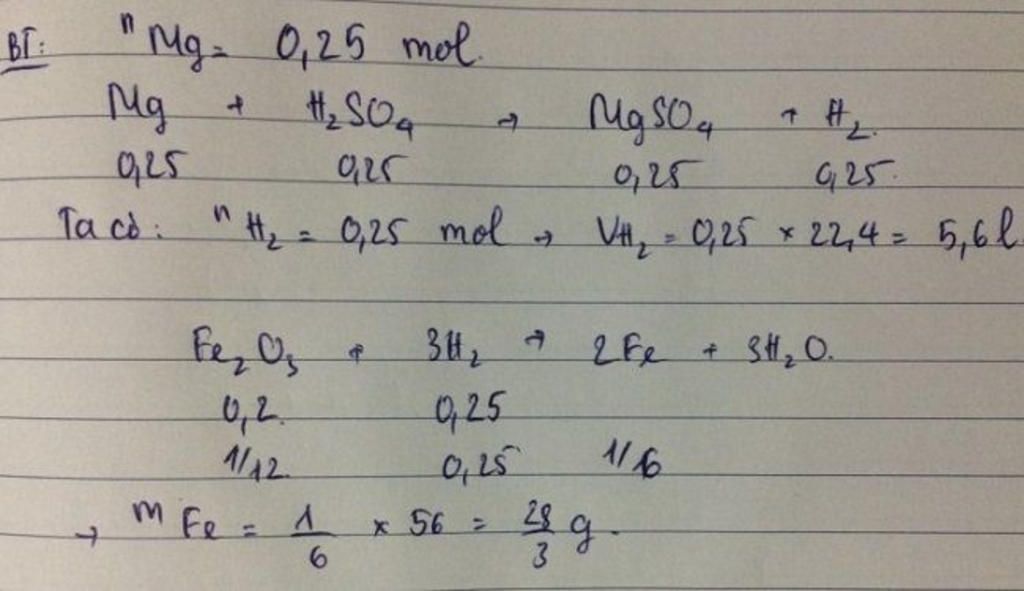 BT: nMg = 0,25 mol.
Mg + H₂SO₄ → MgSO₄ + H₂.
0,25 0,25 0,25 0,25.
Ta có: nH₂ = 0,25 mol → VH₂ = 0,25 × 22,4 = 5,6 l
Fe₂O₃ + 3H₂ → 2Fe + 3H₂O.
0,2. 0,25
1/12. 0,25 1/6
→ mFe = 1/6 × 56 = 28/3 g.